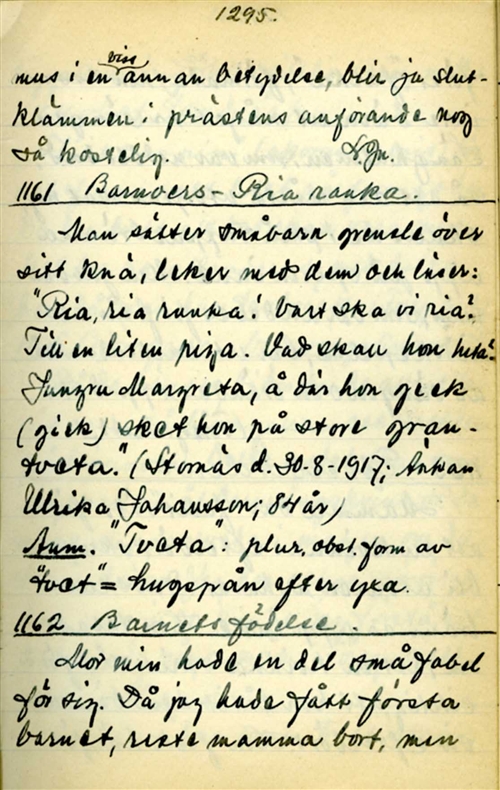 1295.
viss
mus i en annan betydelse, blir ju slut-
klämmen i prästens anförande nog
så kostelig. O.Jn.
1161 Barnvers - Ria ranka.
Man sätter småbarn grensle över
sitt knä, leker med dem och läser:
"Ria, ria ranka! Vart ska vi ria?
Till en liten piga. Vad skall hon heta?
Jungru Margreta, å där hon geck
(gick) sket hon på store gran-
tveta." (Stornäs d. 30-8-1917; Änkan
Ulrika Johansson; 84 år)
Anm. "Tveta": plur. obst. form av
"tvet" = hugspån efter yxa.
1162 Barnets födelse.
Mor min hade en del småfabel
för sig. Då jag hade fått första
barnet, reste mamma bort, men